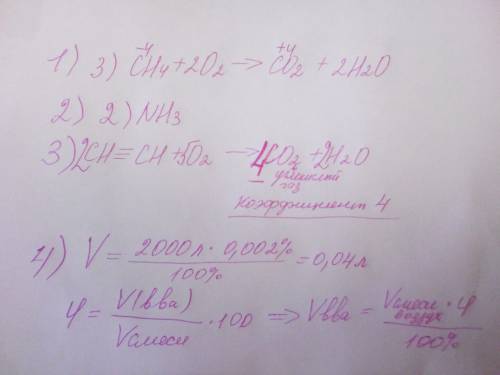 1) 3) CH₄ + 2O₂ → CO₂ + 2H₂O
-4 +4
2) 2) NH₃
3) 2CH≡CH + 5O₂ → 4CO₂ + 2H₂O
углекислый
газ
коэффициент 4
4) V = 2000л · 0,002% / 100% = 0,04л
φ = V(вва) / Vсмеси · 100 ⟹ Vвва = Vсмеси · φ / 100%
воздух